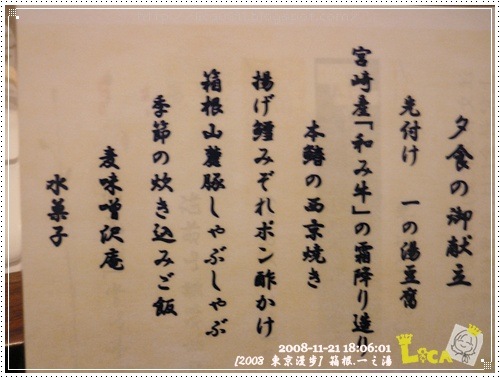 夕食の御献立
先付け　一の湯豆腐
宮崎産「和み牛」の霜降り造り
本鰆の西京焼き
揚げ鱧みぞれポン酢かけ
箱根山麓豚しゃぶしゃぶ
季節の炊き込みご飯
麦味噌沢庵
水菓子
2008-11-21 18:06:01
[2008 東京漫步] 箱根.一之湯
LyCA